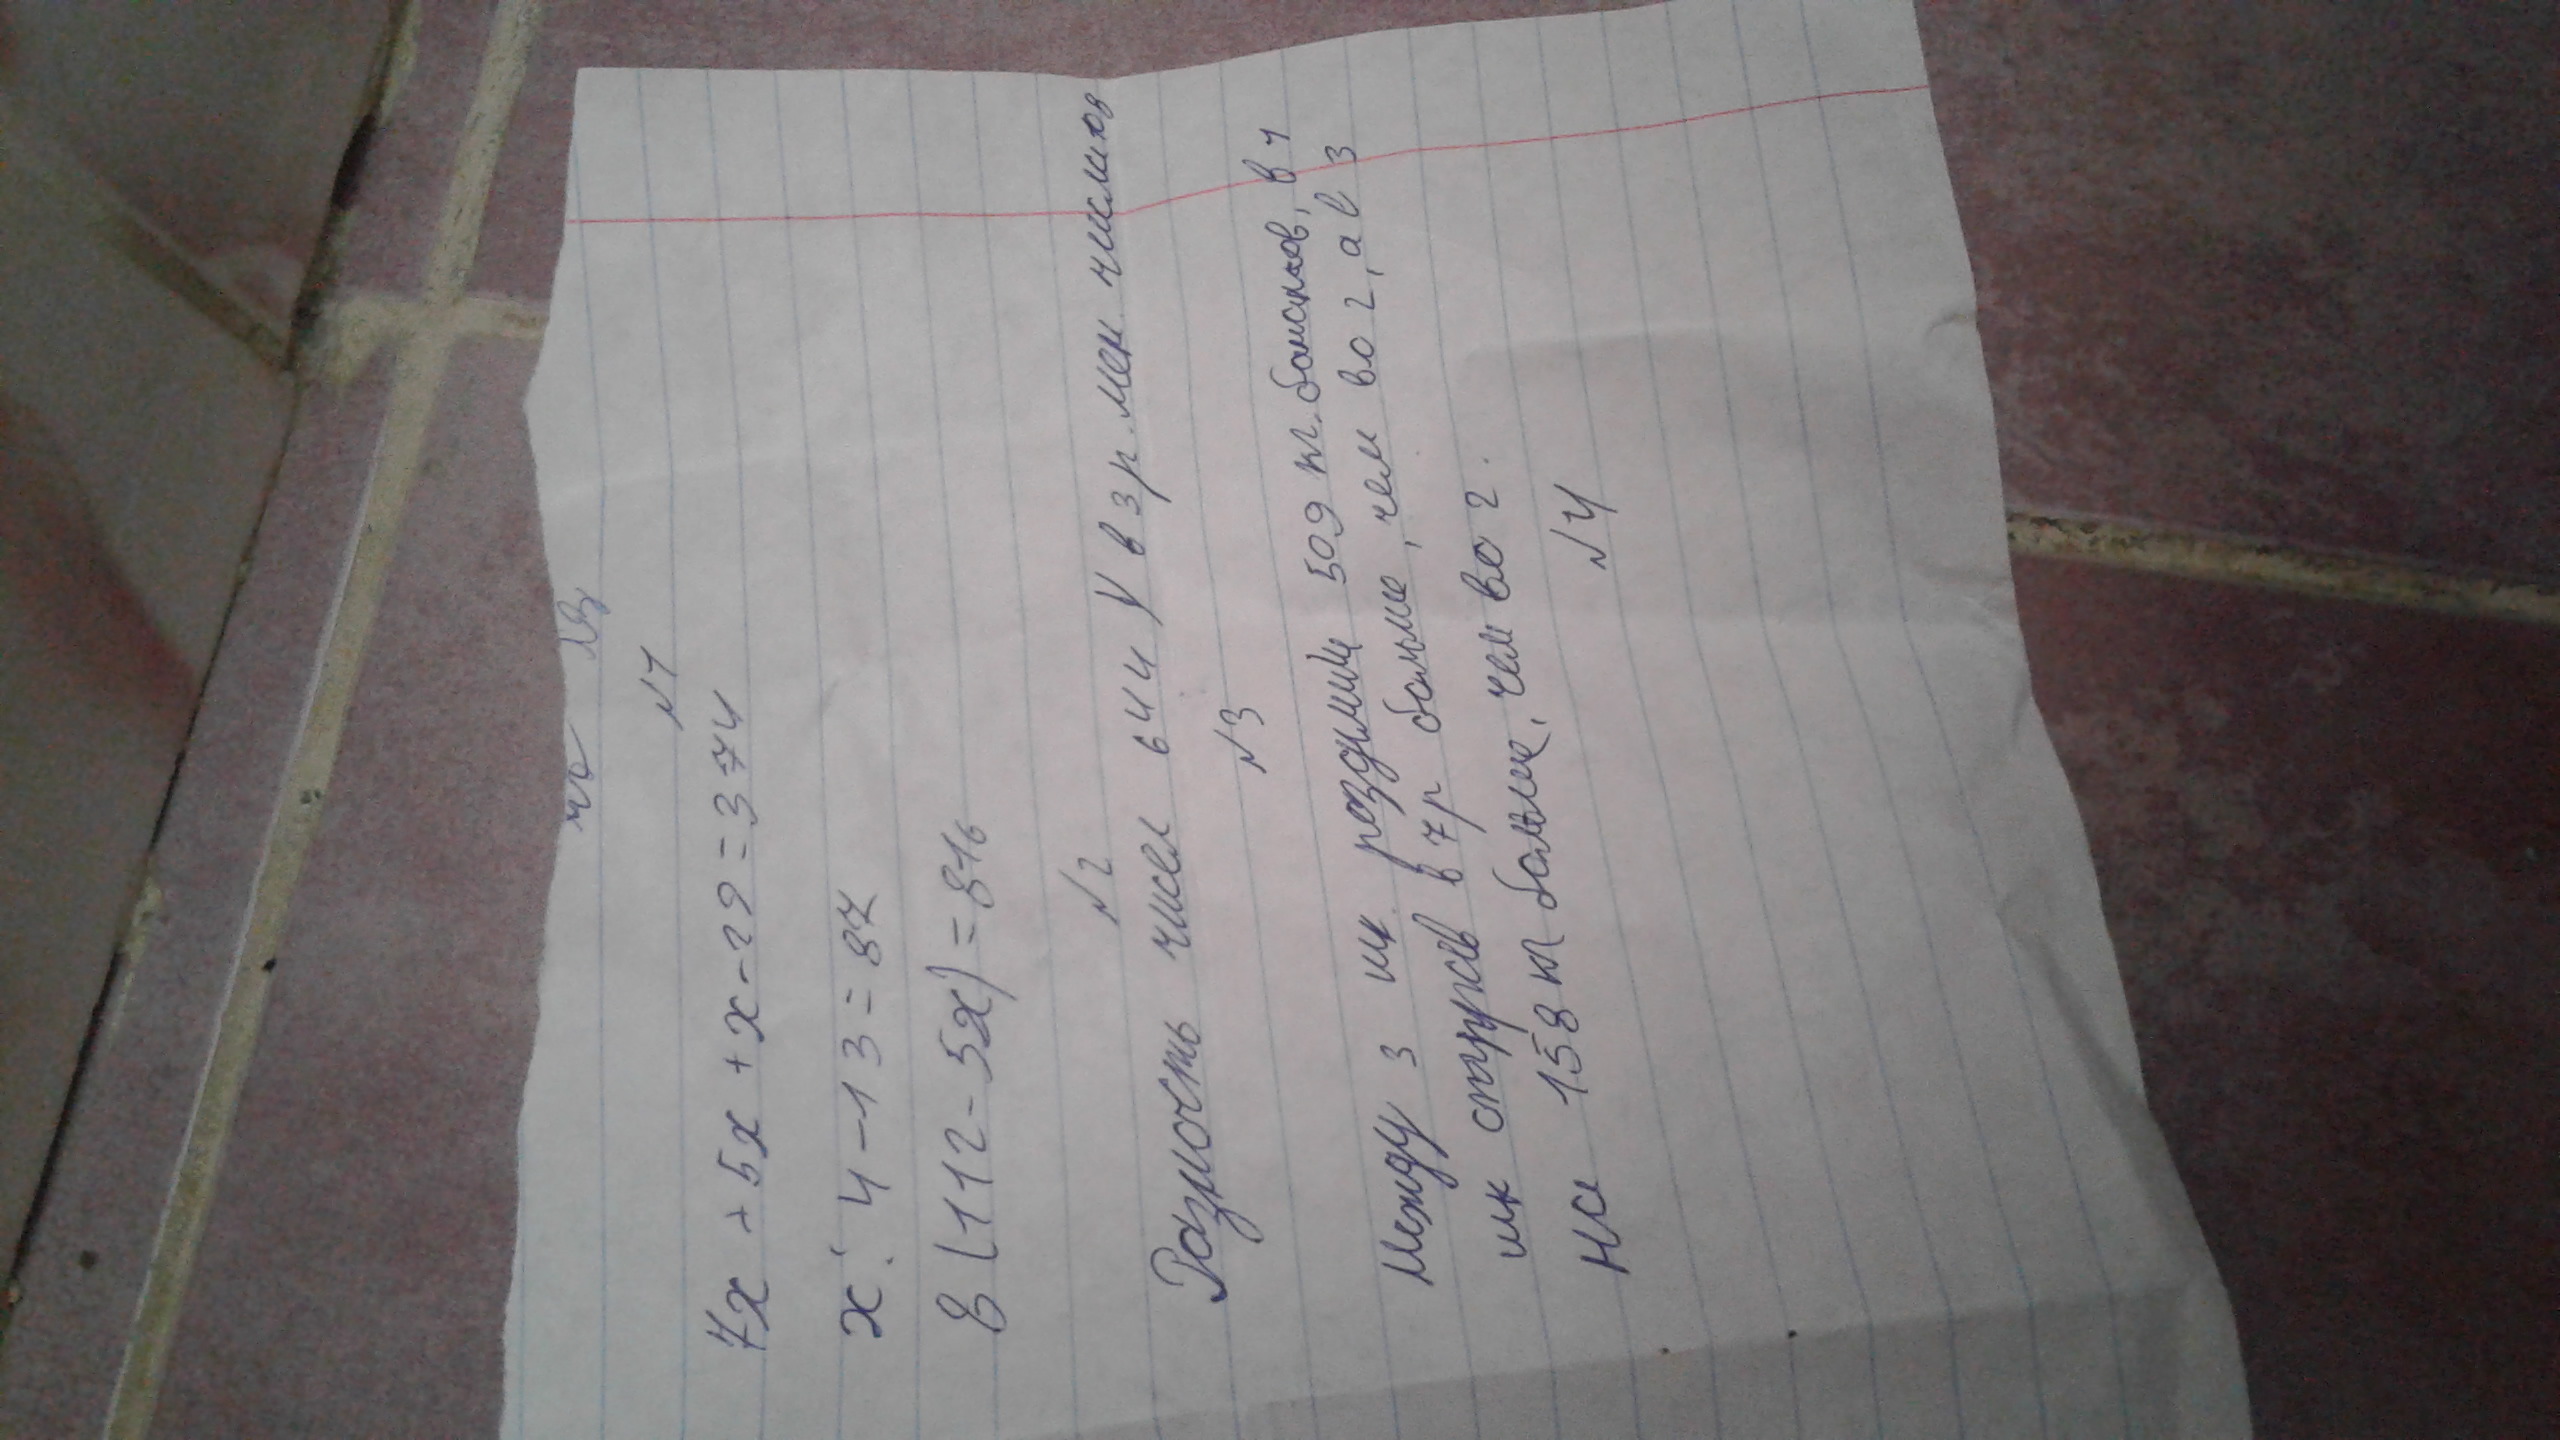 №1
7x + 5x + x - 29 = 374
x : 4 - 13 = 87
8(112 - 5x) = 816
№2
Разность чисел 64 и y в 3 р. мен числ
№3
Между 3 шк раздили 509 кг. бананов, в 1
шк отпр в 7р больше, чем во 2, а в 3
на 158 кг больше, чем во 2.
№4